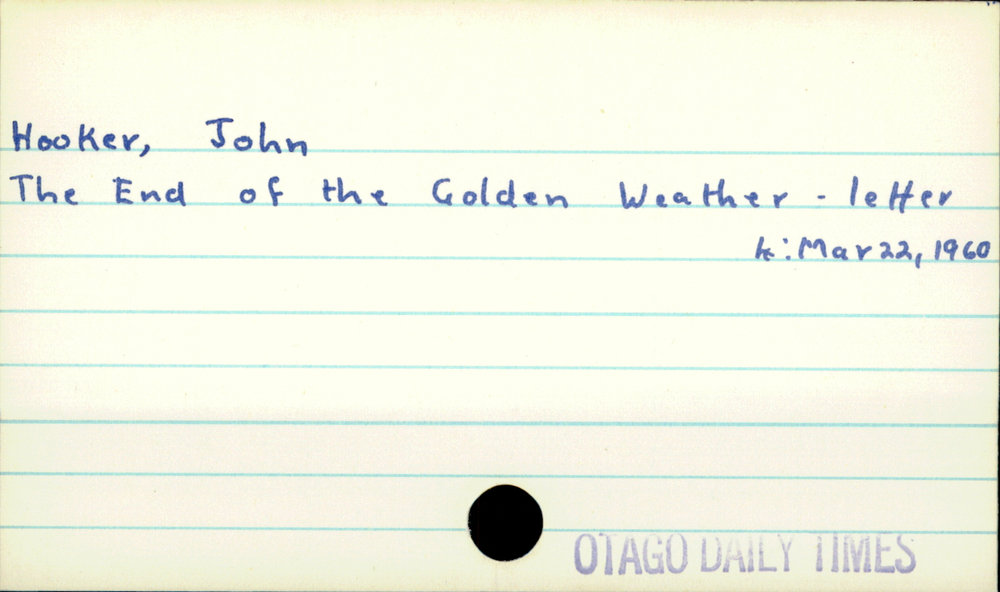 Hooker, John
The End of the Golden Weather - letter
4:Mar 22, 1960
OTAGO DAILY TIMES